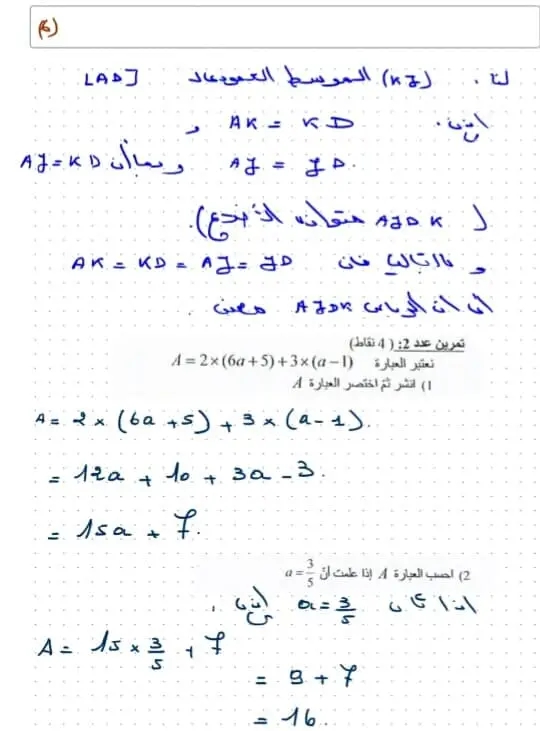 (6
لنا . (KJ) الموسط العمودي لـ [AD]
إذن . AK = KD و
AJ = JD. وبما أن AJ = KD
(AJDK متوازي الأضلاع).
وبالتالي فإن AK = KD = AJ = JD
أي أن الرباعي AJDK معين .
تمرين عدد 2: (4 نقاط)
نعتبر العبارة A = 2×(6a+5)+3×(a−1)
1) انشر ثم اختصر العبارة A
A = 2 × (6a + 5) + 3 × (a − 1).
= 12a + 10 + 3a − 3.
= 15a + 7.
2) احسب العبارة A إذا علمت أنّ a = 3/5
إذا كان a = 3/5 إذن ,
A = 15 × 3/5 + 7
= 9 + 7
= 16.